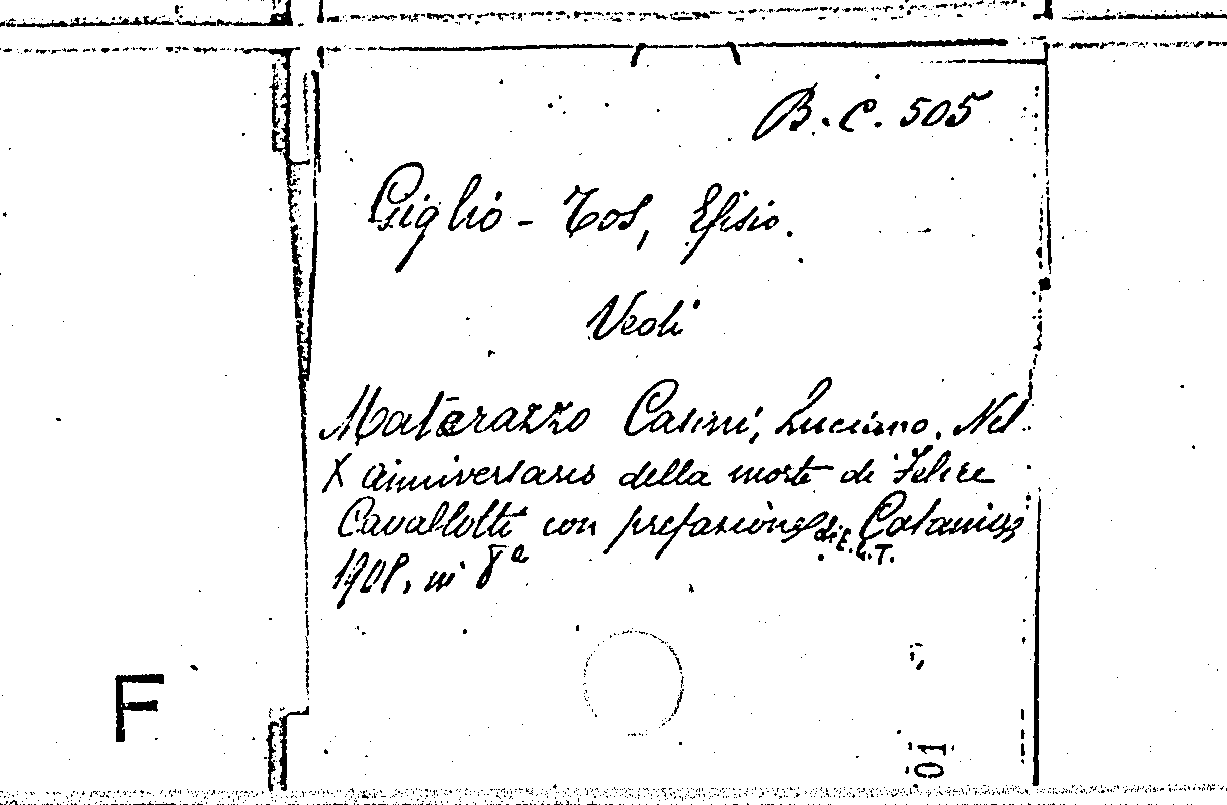 B.C. 505
Giglio-Tos, Efisio.
Vedi
Matarazzo Casini, Luciano. Nel
X anniversario della morte di Felice
Cavallotti con prefazione di E.G.T. Catania
1908. in 8°
F
01